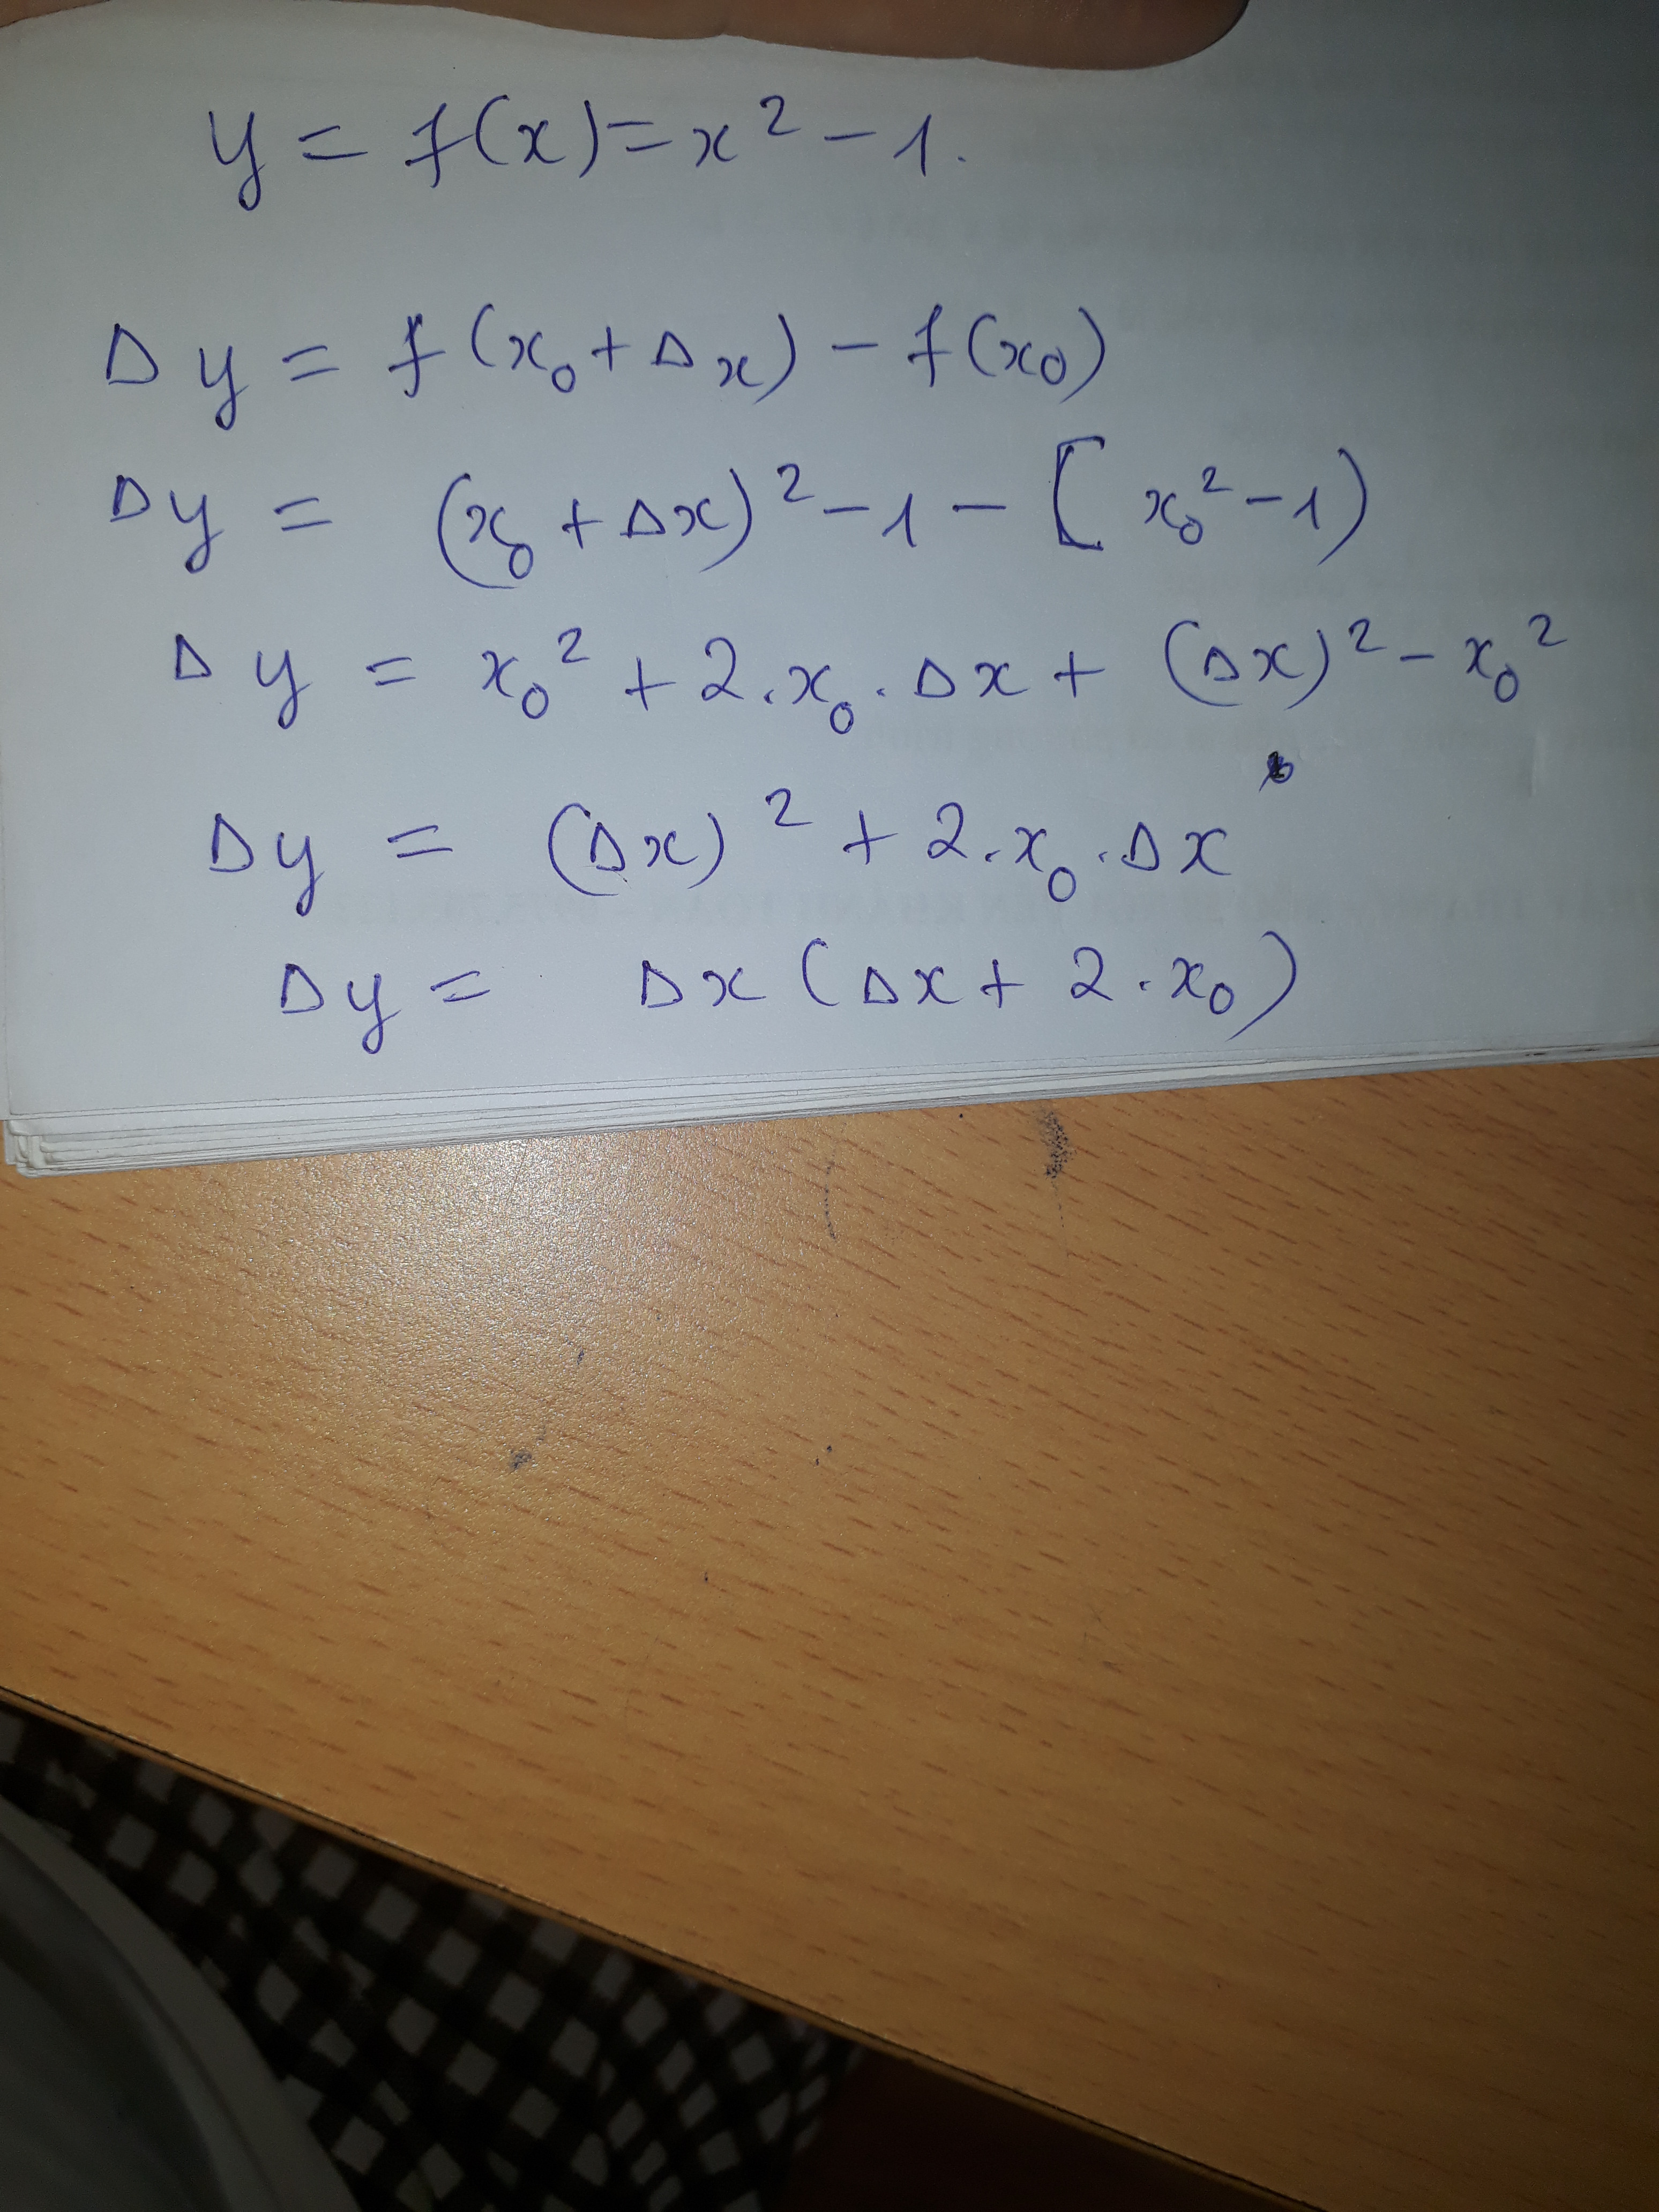 y = f(x) = x² - 1.
Δy = f(x₀ + Δx) - f(x₀)
Δy = (x₀ + Δx)² - 1 - [x₀² - 1)
Δy = x₀² + 2.x₀.Δx + (Δx)² - x₀²
Δy = (Δx)² + 2.x₀.Δx
Δy = Δx (Δx + 2.x₀)